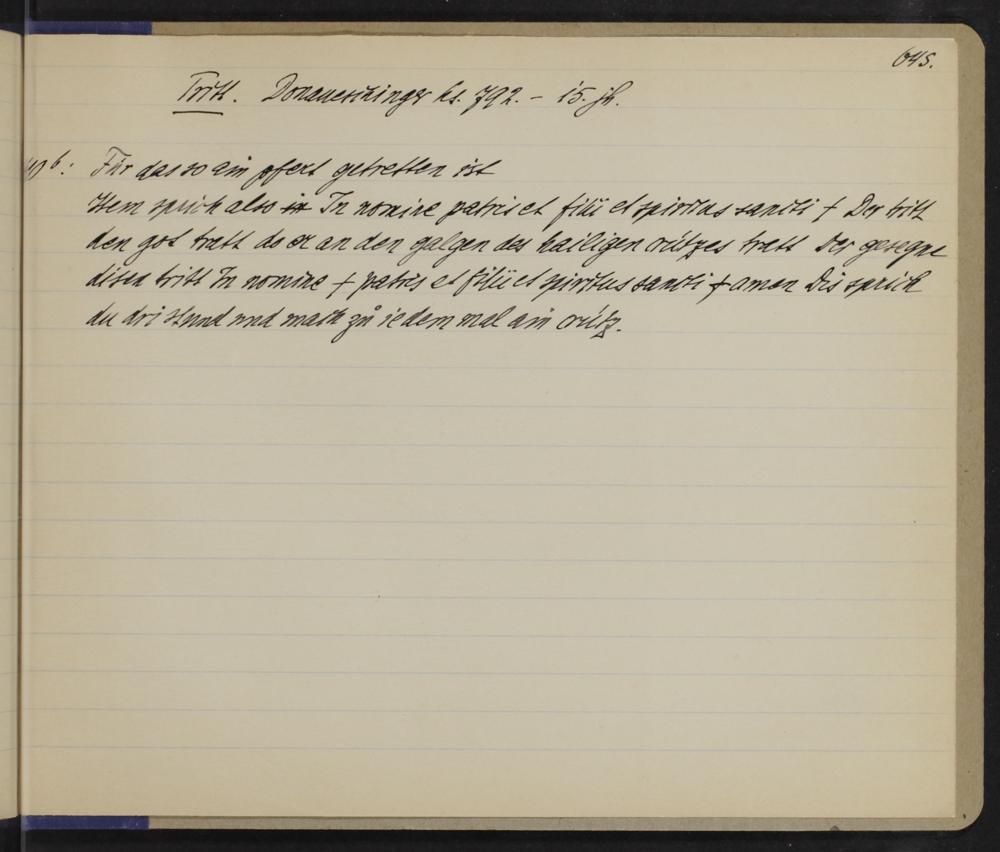 645.
Tritt. Donaueschinger hs. 792. – 15. jh.
b: Für das so ain pfert getretten ist
Item sprich also in In nomine patris et filii et spiritus sancti + Der tritt
den got tratt do er an den galgen des hailigen crützes tratt Der gesegne
disen tritt In nomine + patris et filii et spiritus sancti + amen Dis sprich
du dri stund und mach zů iedem mal ain crütz.